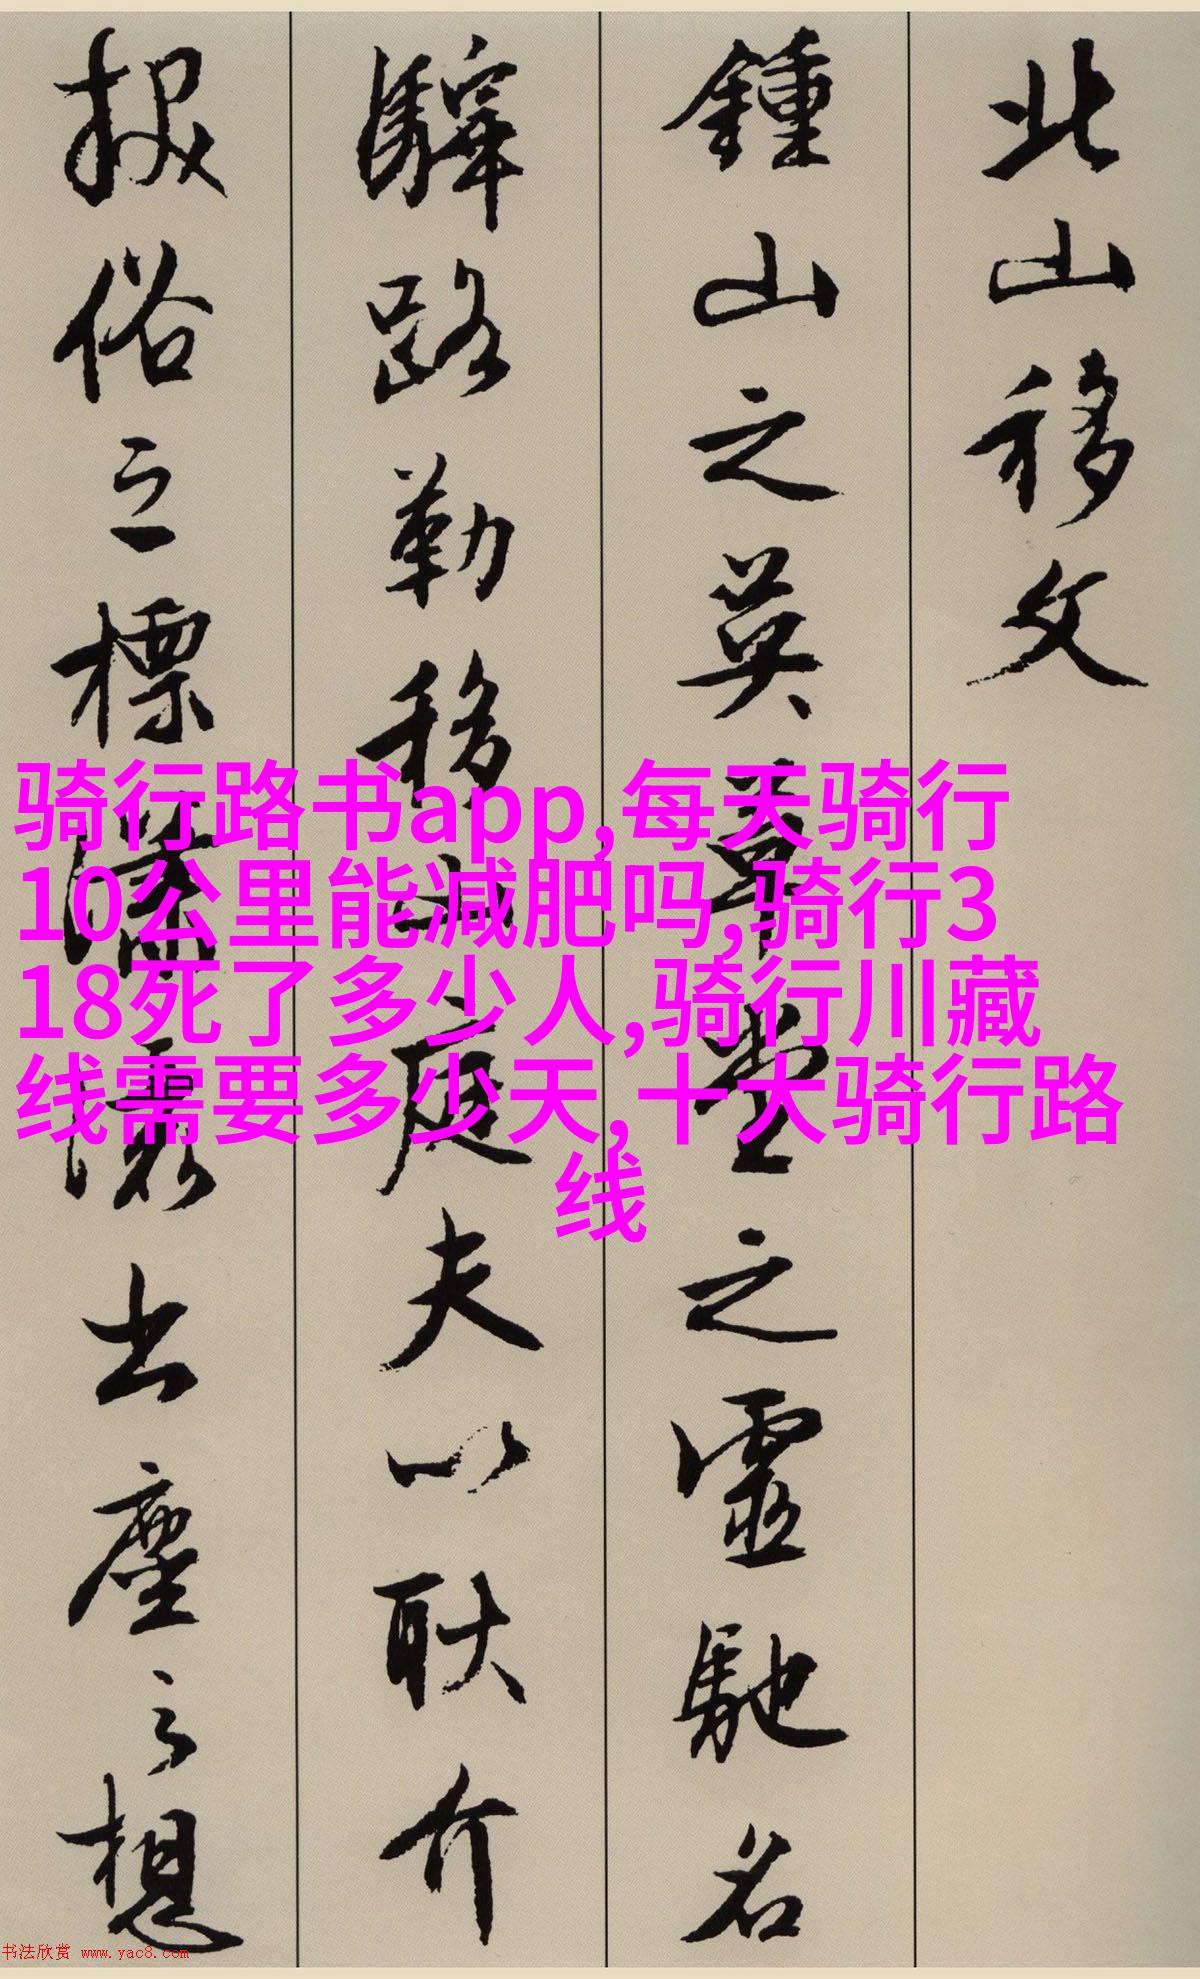 北山移文
鍾山之英草堂之靈馳名
驛路勒移山庭夫以耿介
拔俗之標瀟灑出塵之想
骑行路书app,每天骑行
10公里能减肥吗,骑行3
18死了多少人,骑行川藏
线需要多少天,十大骑行路
线
书法欣赏 www.yac8.com